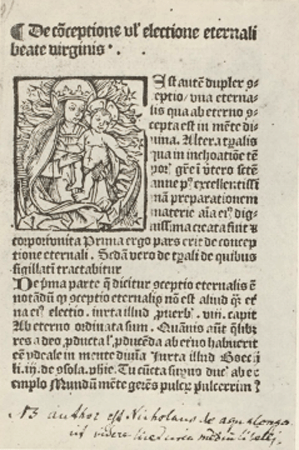 ¶ De cōceptione vl' electione eternali
beate virginis.
Ast autē duplex ↄ
ceptio/vna eterna-
lis qua ab eterno ↄ
cepta est in mēte di
uina. Altera tp̄alis
qua in inchoatiōe tē
por̄ gn̄ei ī vtero scrē
anne ꝑ excellentissī
mā preparationem
materie aīa ei' dig-
nissima creata fuit ⁊
corpori vnita Prima ergo pars erit de concep
tione eternali. Scd̄a vero de tp̄ali de quibus
sigillatī tractabitur
De p̄ma parte q̄ dicitur ↄceptio eternalis ē
notādū qɜ ↄceptio eternalis nō est aliud qɜ et̄
na ei' electio. iuxta illud puerb'. viii. capit
Ab eterno ordinata sum. Quāuis aūt q̄libɜ
res a deo, pducta l' pducēda ab et̄no habuerit
eē ydeale in mente diuina Iuxta illud Boecii
li. iii. de ↄsola. phie. Tu cūcta suꝑno duc' ab ex
emplo Mundū mēte gerēs pulcɜ pulcerrim'
NB author est Nicholaus de aqualonga
ut videre licet circa medium libelli.